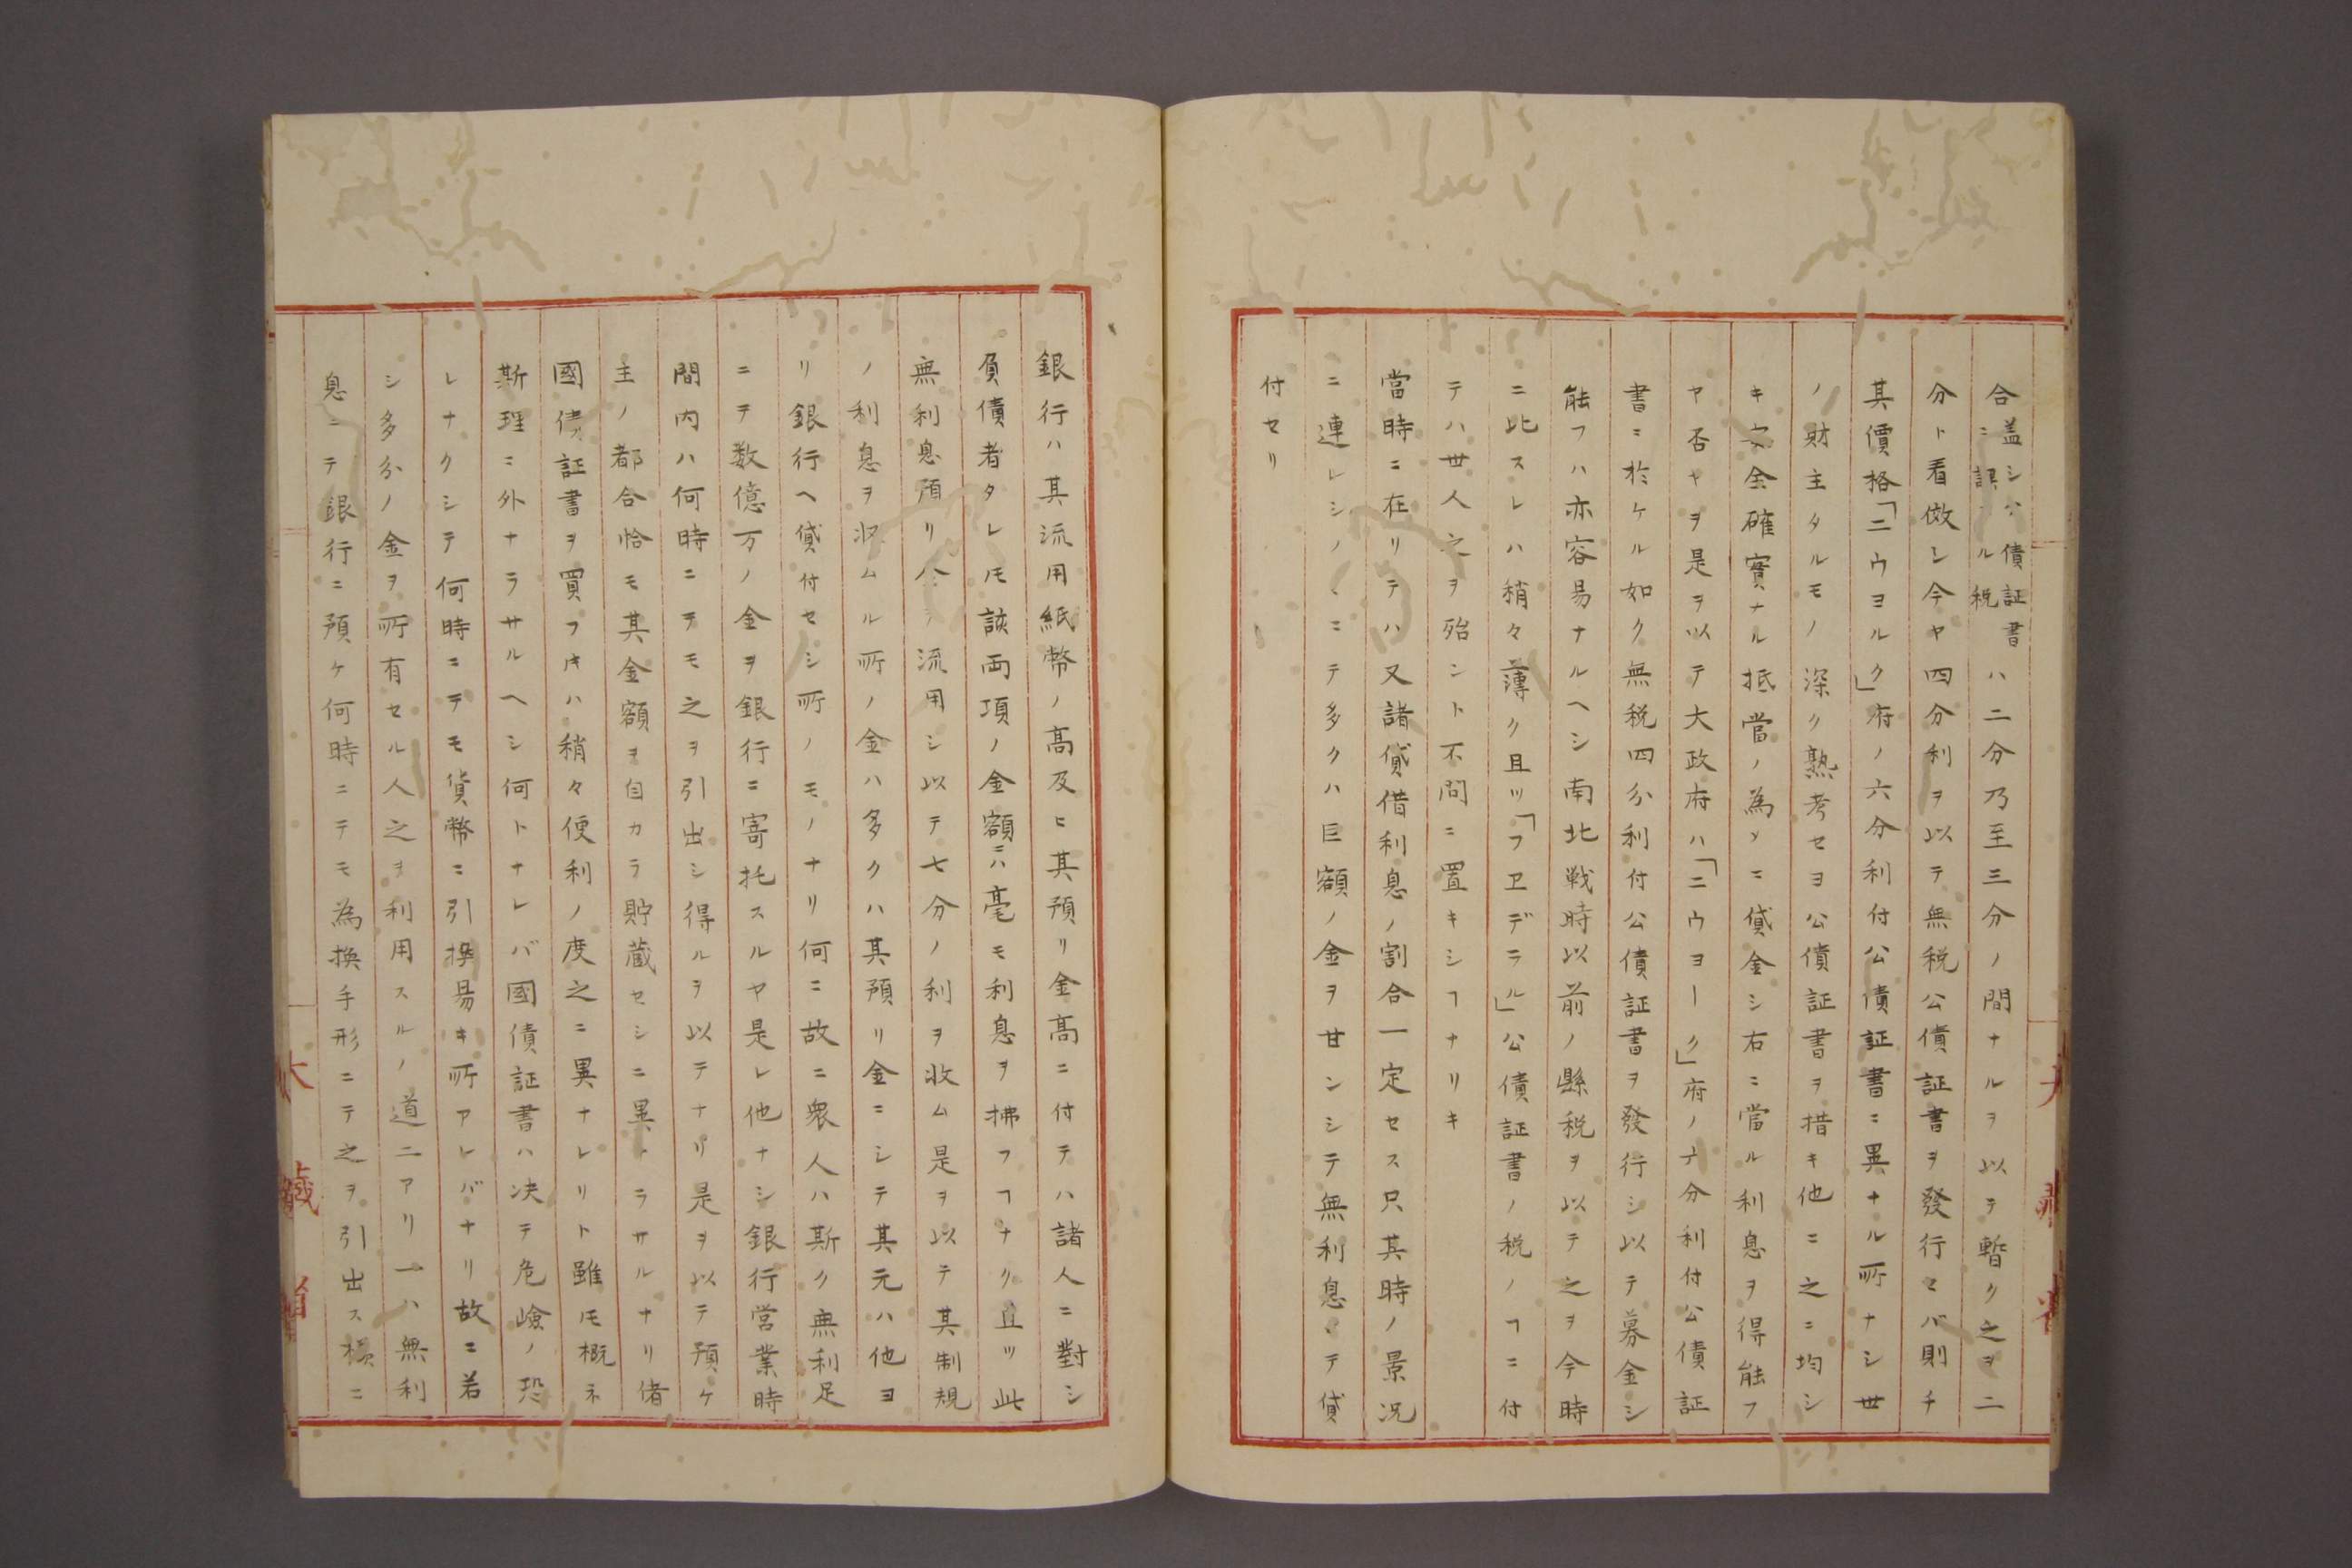 合盖シハ債証書ハ二分乃至三分ノ間ナルヲ以テ暫ク之ヲ二
ニ課ル税
分ト看做シ今ヤ四分利ヲ以テ無税公債証書ヲ發行セバ則チ
其價格「ニウヨルク」府ノ六分利付公債証書ニ異ナル所ナシ世
ノ財主タルモノ深ク熟考セヨ公債証書ヲ措キ他ニ之ニ均シ
キ安全確實ナル抵當ノ為メニ貸金シ右ニ當ル利息ヲ得能フ
ヤ否ヤヲ是ヲ以テ大政府ハ「ニウヨーク」府ノ六分利付公債証
書ニ於ケル如ク無税四分利付公債証書ヲ發行シ以テ募金シ
能フハ亦容易ナルヘシ南北戦時以前ノ縣税ヲ以テ之ヲ今時
ニ比スレハ稍々薄ク且ツ「フヱデラル」公債証書ノ税ノヿニ付
テハ世人之ヲ殆ント不問ニ置キシヿナリキ
當時ニ在リテハ又諸貸借利息ノ割合一定セス只其時ノ景况
ニ連レシノミニテ多クハ巨額ノ金ヲ甘ンシテ無利息ニテ貸
付セリ
銀行ハ其流用紙幣ノ高及ヒ其預リ金高ニ付テハ諸人ニ對シ
負債者タレ𪜈該両項ノ金額ニハ毫モ利息ヲ拂フヿナク且ツ此
無利息預リ金ヲ流用シ以テ七分ノ利ヲ收ム是ヲ以テ其制規
ノ利息ヲ收ムル所ノ金ハ多クハ其預リ金ニシテ其元ハ他ヨ
リ銀行ヘ貸付セシ所ノモノナリ何ニ故ニ衆人ハ斯ク無利足
ニテ数億万ノ金ヲ銀行ニ寄托スルヤ是レ他ナシ銀行営業時
間内ハ何時ニテモ之ヲ引出シ得ルヲ以テナリ是ヲ以テ預ケ
主ノ都合恰モ其金額ヲ自カラ貯蔵セシニ異ナラサルナリ偖
國債証書ヲ買フ𪜈ハ稍々便利ノ度之ニ異ナレリト雖𪜈概ネ
斯理ニ外ナラサルヘシ何トナレバ國債証書ハ决テ危嶮ノ恐
レナクシテ何時ニテモ貨幣ニ引換易キ所アレバナリ故ニ若
シ多分ノ金ヲ所有セル人之ヲ利用スルノ道二アリ一ハ無利
息ニテ銀行ニ預ケ何時ニテモ為換手形ニテ之ヲ引出ス様ニ
大藏省
大藏省